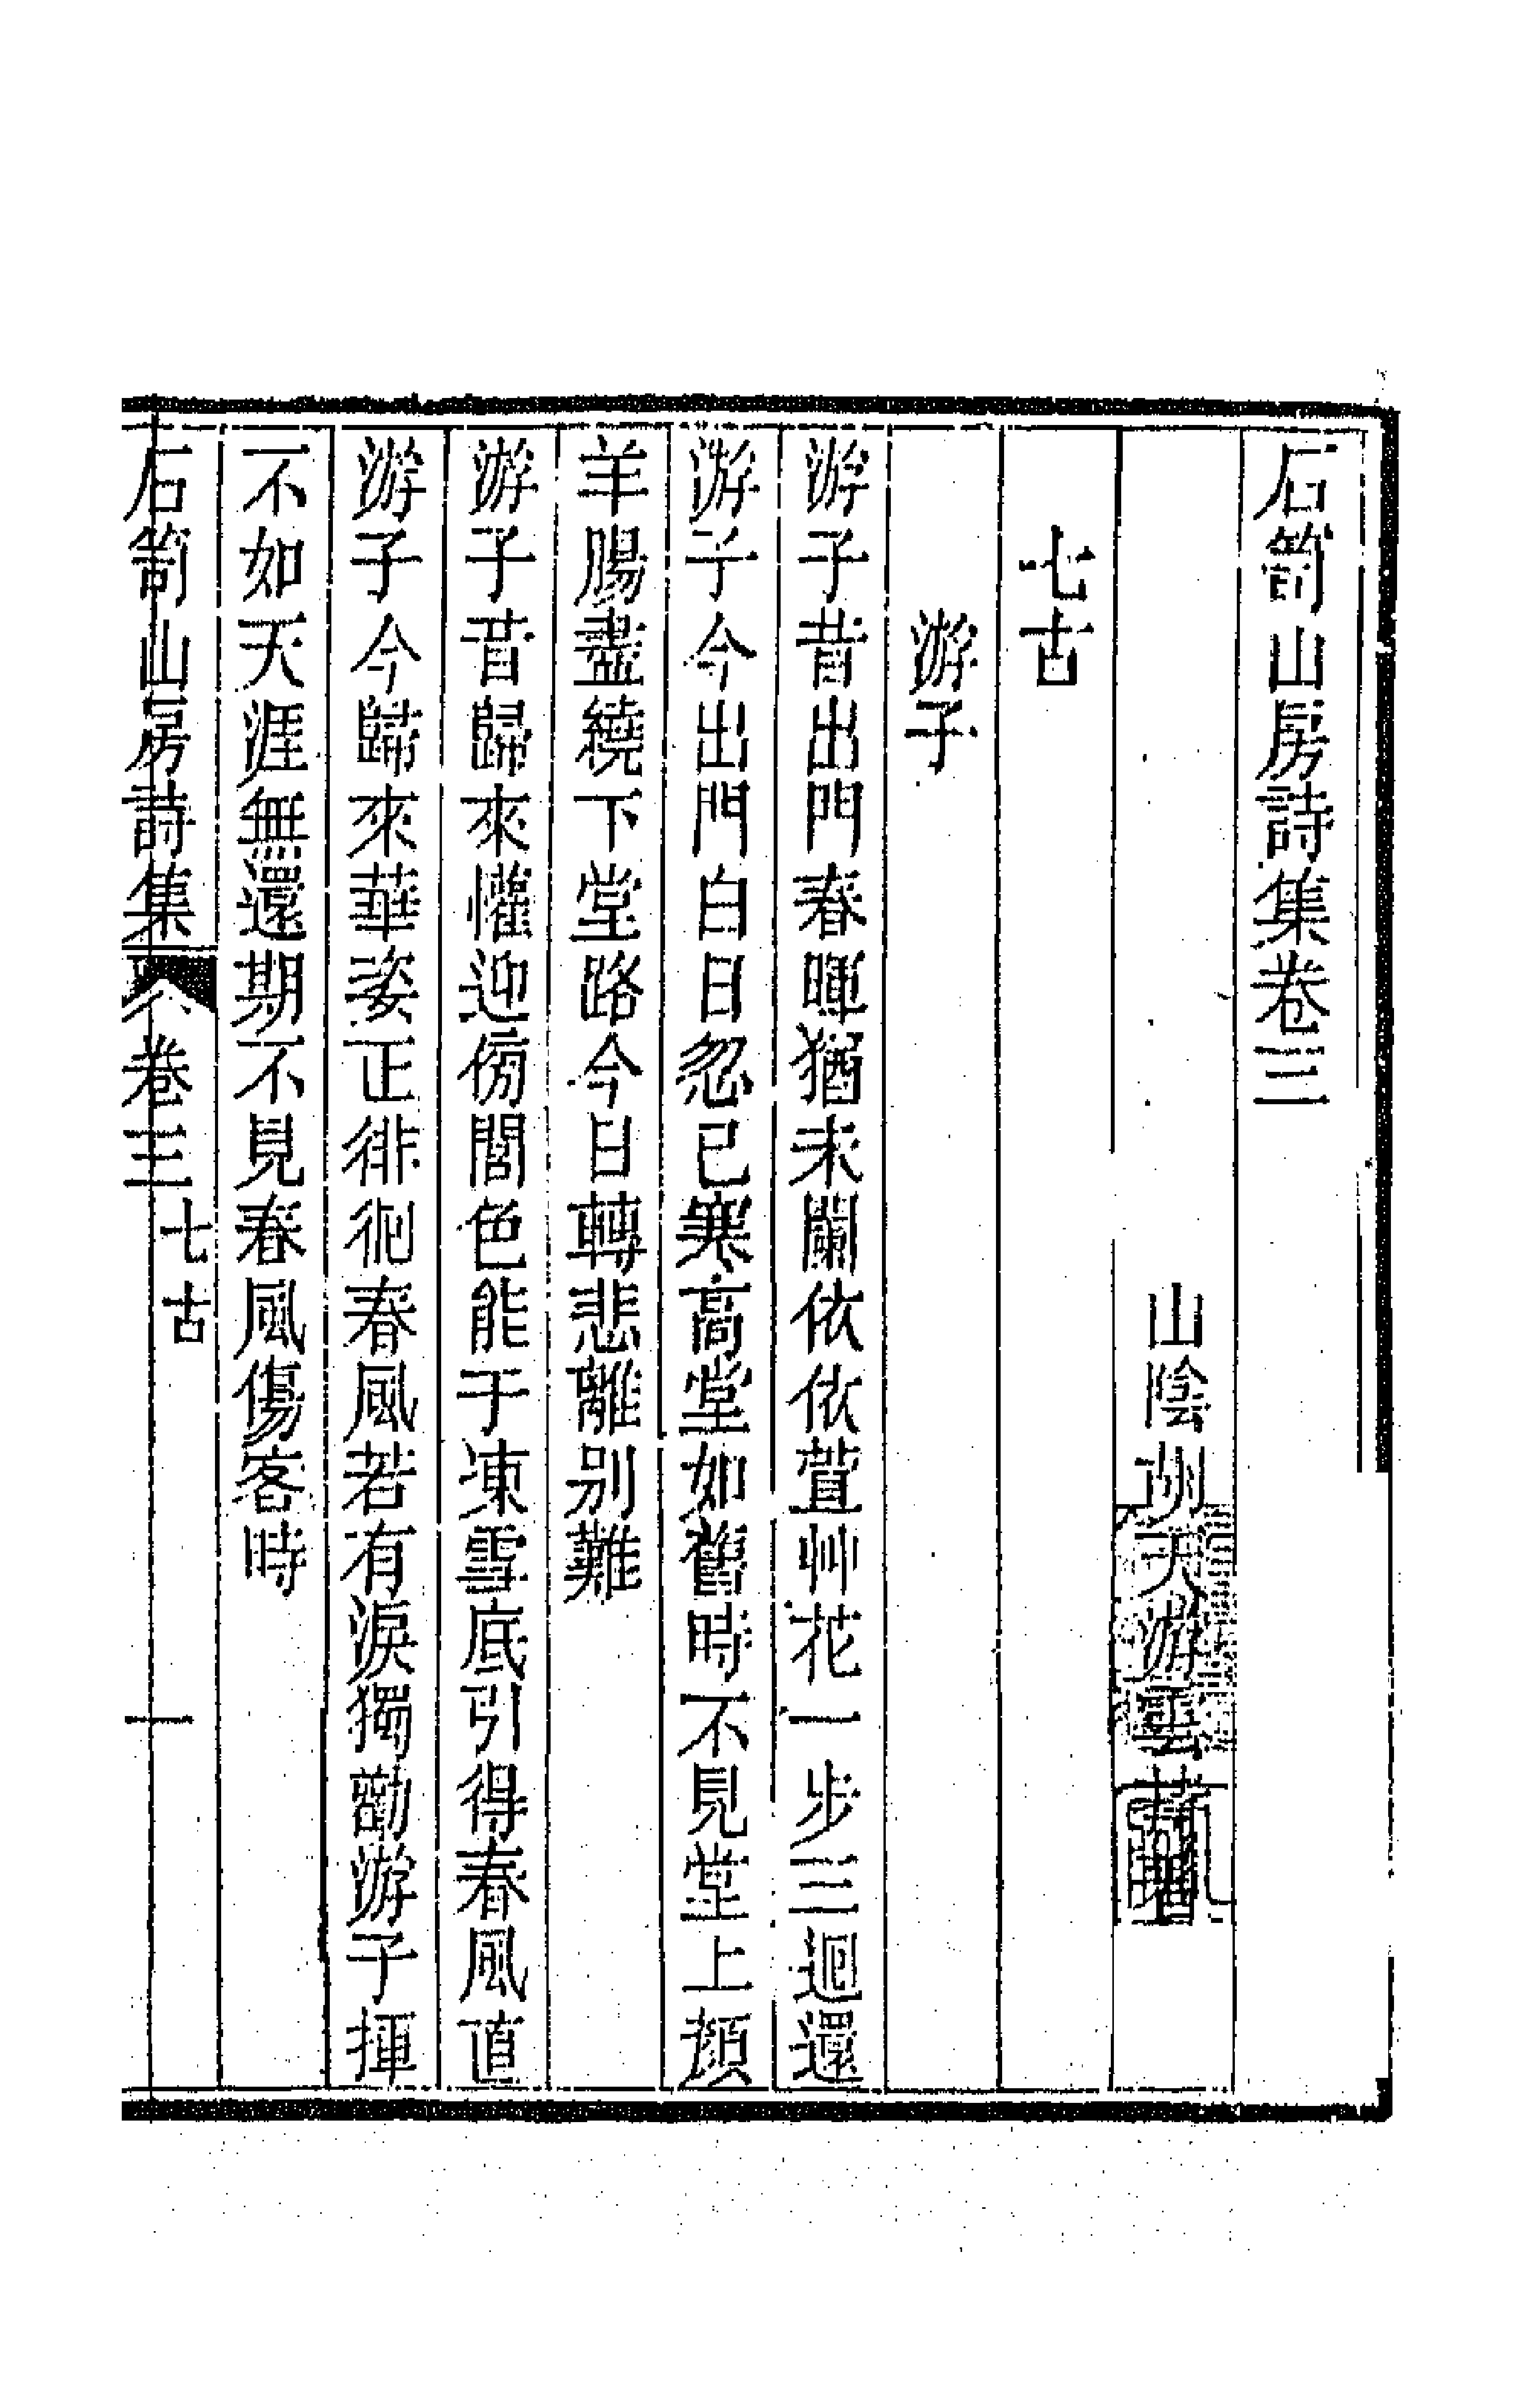 石笥山房詩集卷三
山陰胡天游雲持著
七古
游子
游子昔出門春暉猶未闌依依萱艸花一步三迴還
游子今出門白日忽已寒高堂如舊時不見堂上顏
羊腸盡繞下堂路今日轉悲離別難
游子昔歸來懽迎傍閭色能于凍雪底引得春風直
游子今歸來華姿正徘徊春風若有淚獨勸游子揮
不如天涯無還期不見春風傷客時
石笥山房詩集 卷三 七古 一